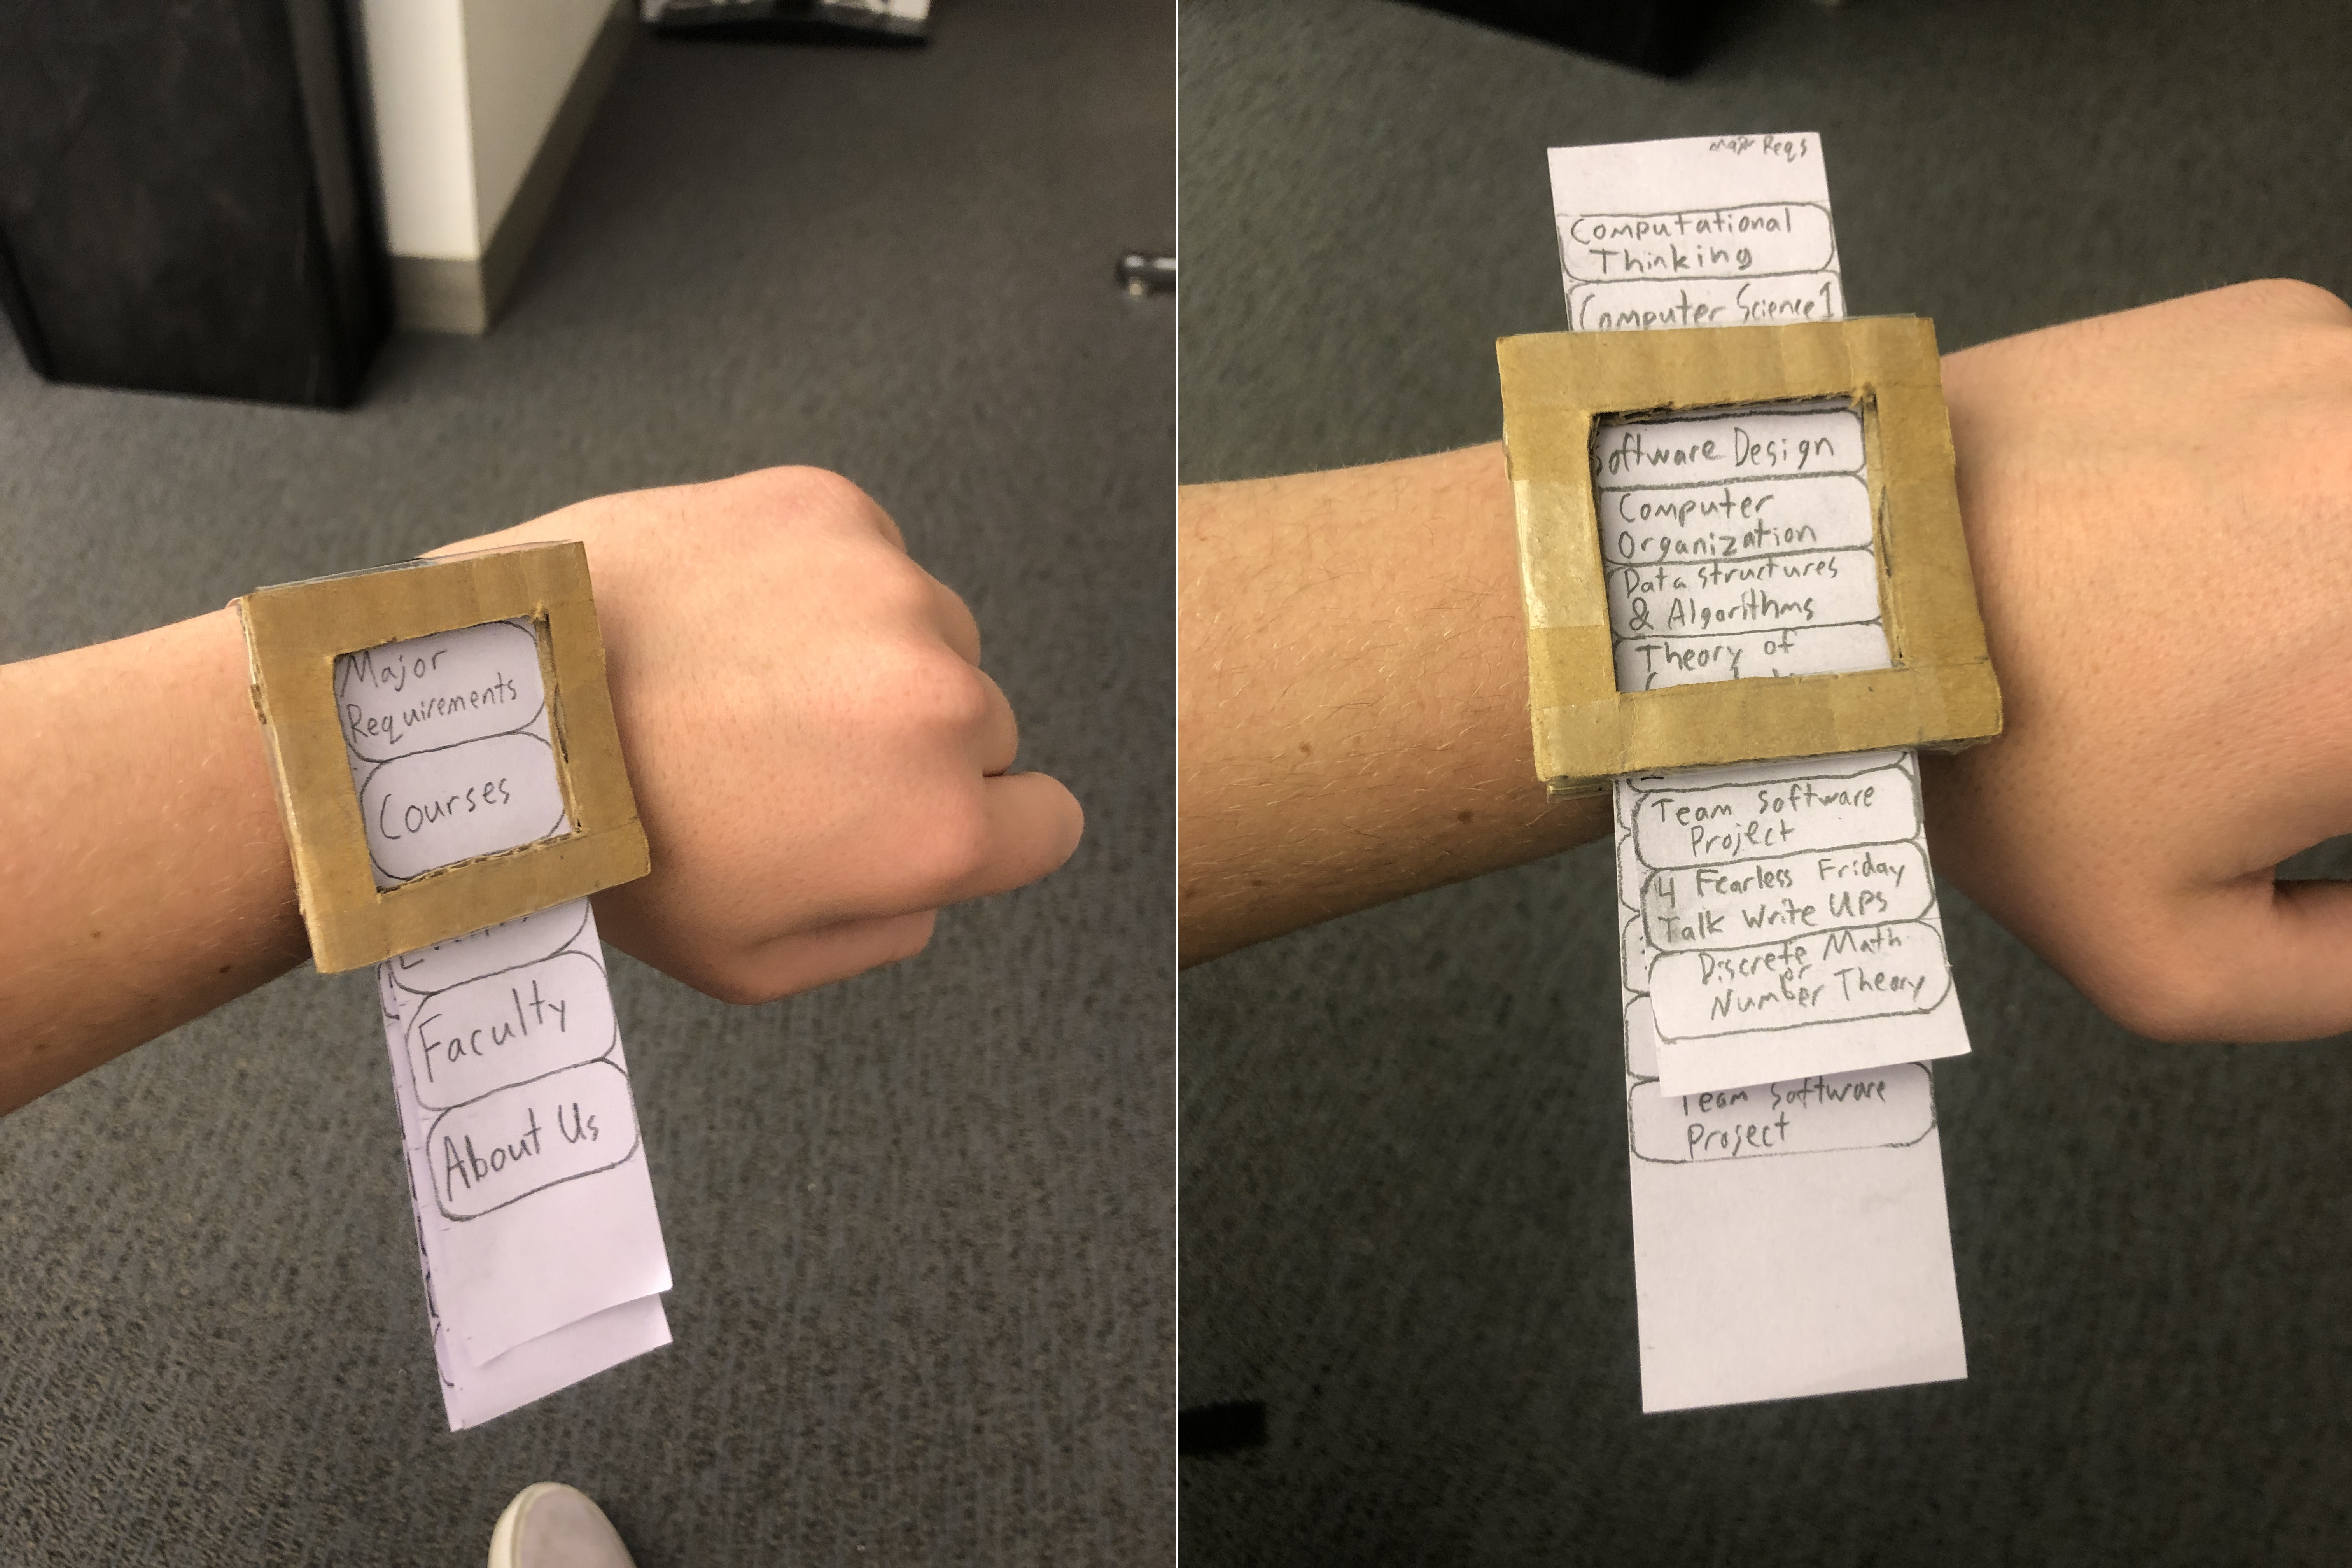 Major
Requirements
Courses
Faculty
About Us
Major Reqs
Computational
Thinking
Computer Science 1
Software Design
Computer
Organization
Data structures
& Algorithms
Theory of
Team Software
Project
4 Fearless Friday
Talk Write Ups
Discrete Math
or
Number Theory
Team Software
Project